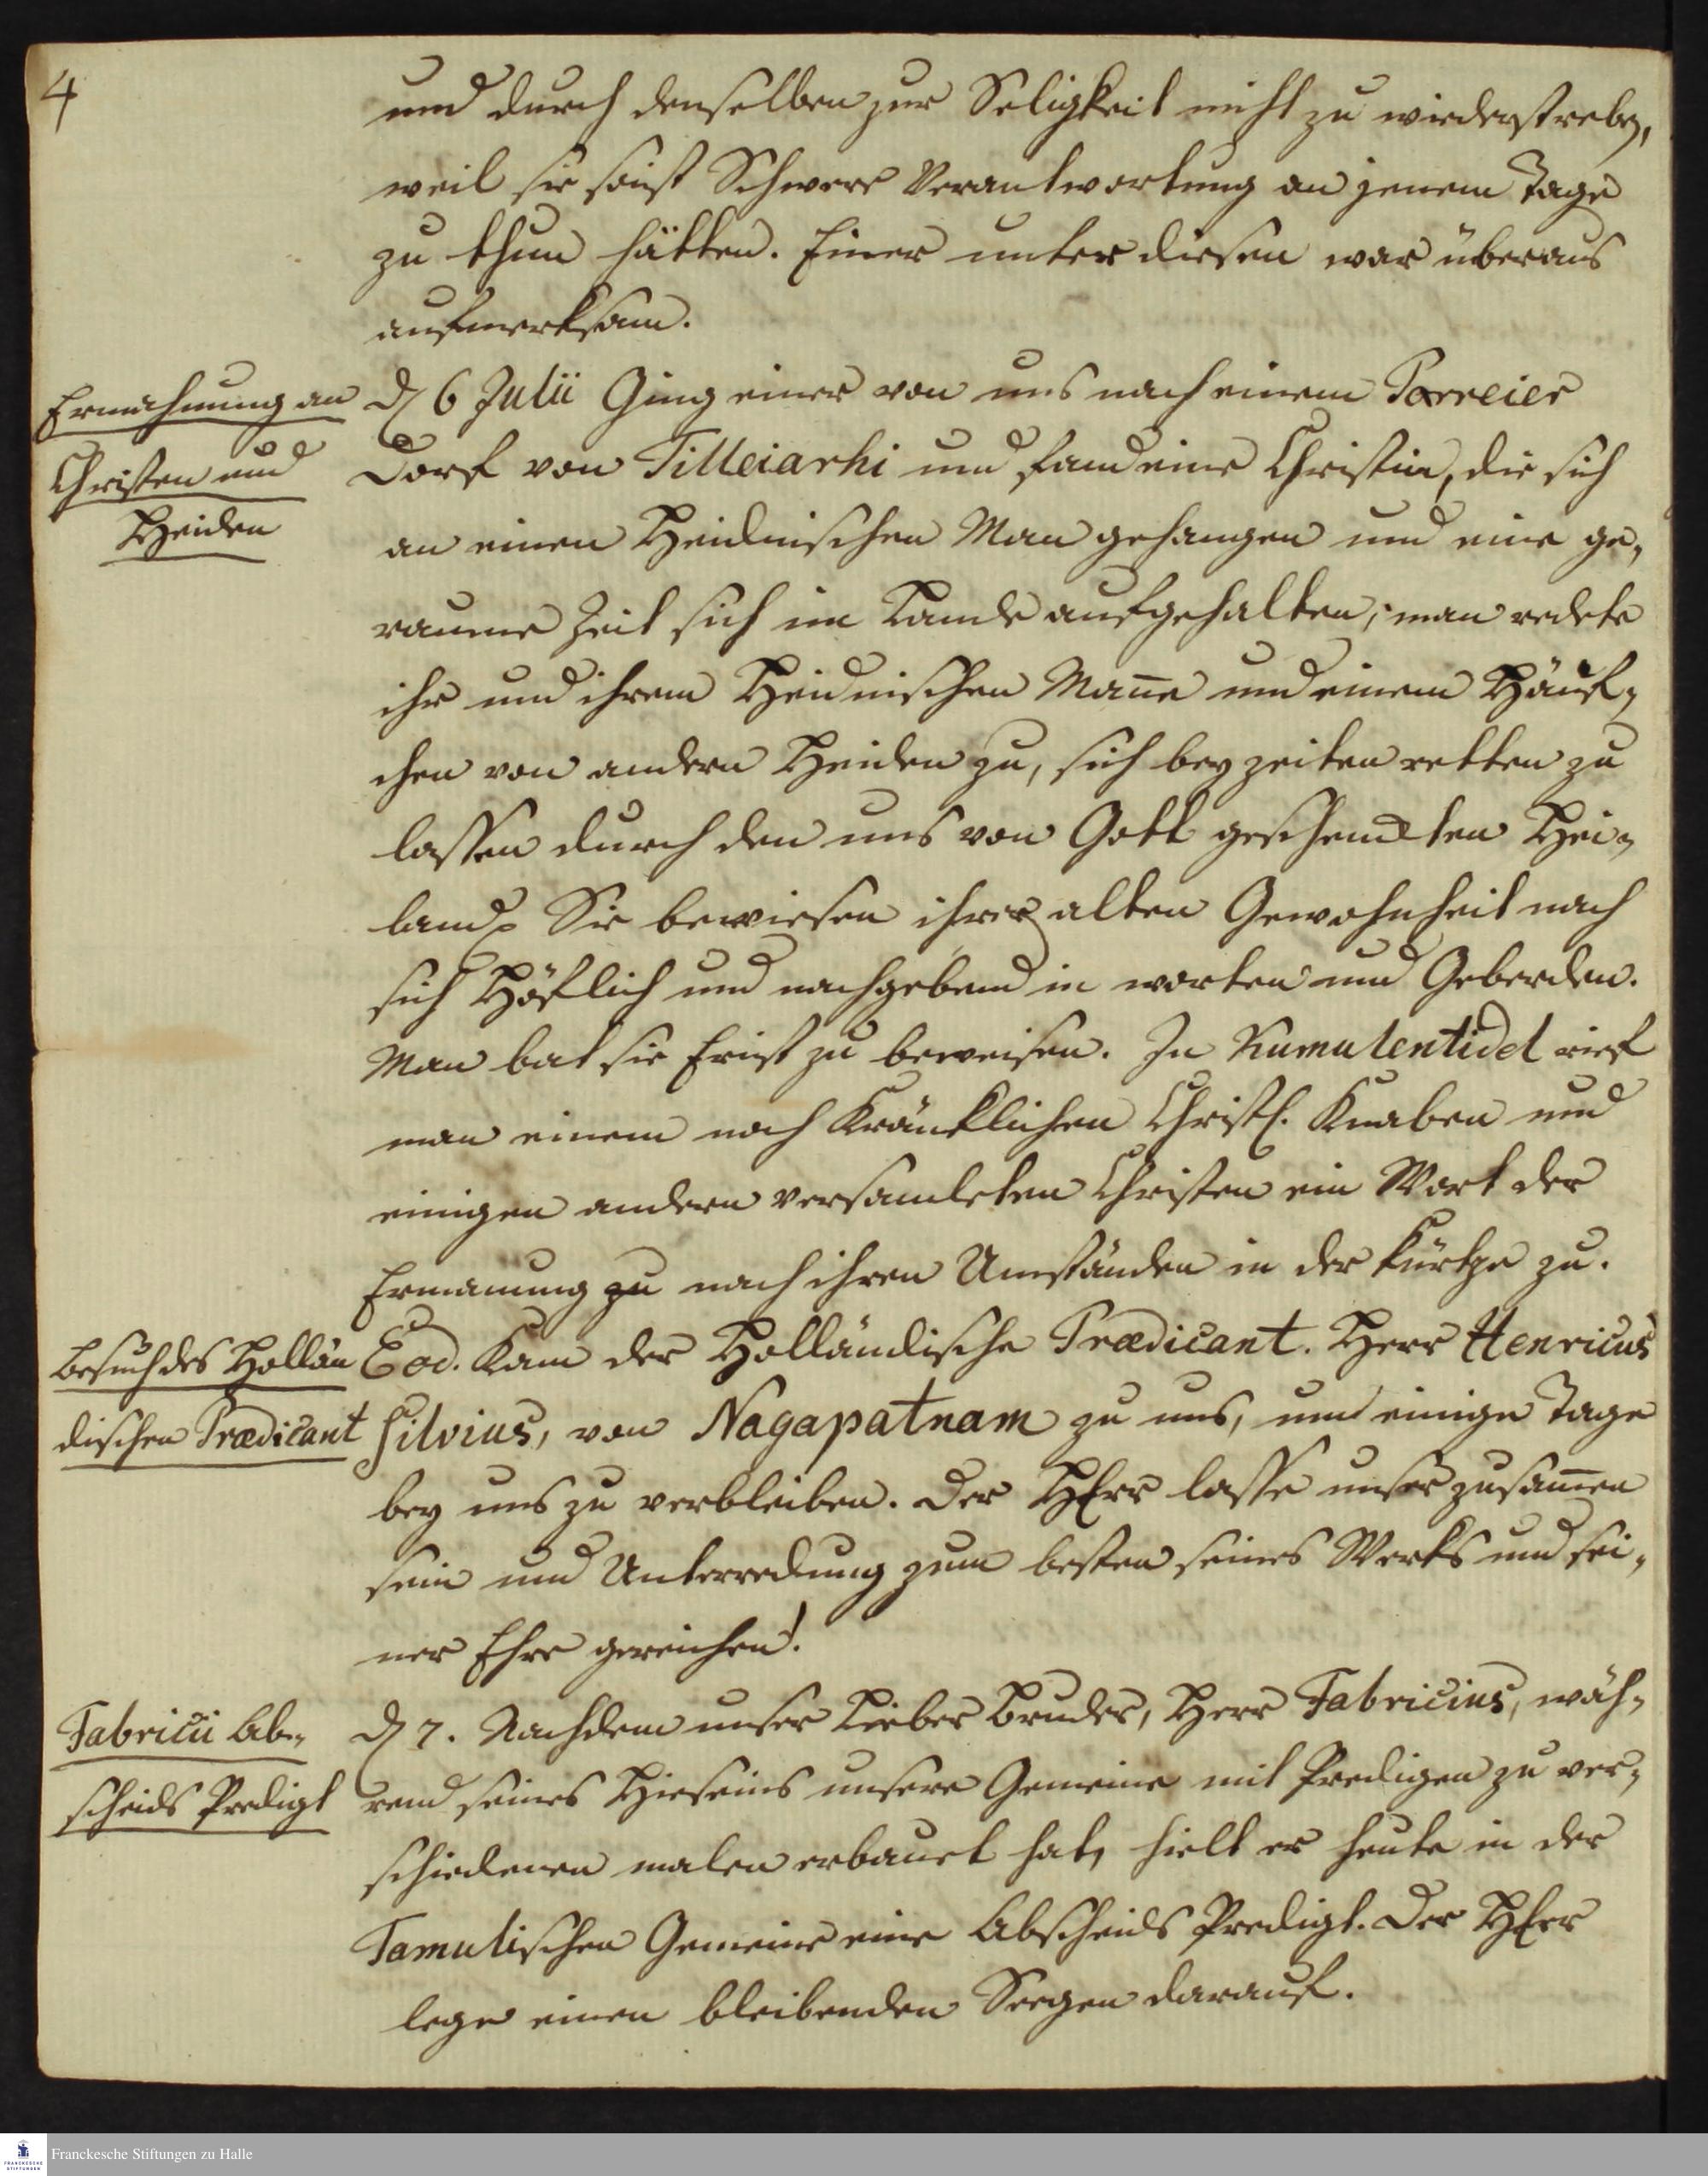 4
und durch denselben zur Seligkeit nicht zu wiederstreben,
weil sie sonst Schwere Verantwortung an jenem Tage
zu thun hätten. Einer unter diesen war überaus
aufmerksam.
Ermahnung an
Christen und
Heiden
d. 6 Julii Ging einer von uns nach einem Parreier
Dorf von Tilleiarhi und fand eine Christin, die sich
an einen Heidnischen Man gehangen und eine ge-
raume Zeit sich im Lande aufgehalten; man redete
ihr und ihrem Heidnischen Mañe und einem Häuf-
chen von andern Heiden zu, sich bey zeiten retten zu
lassen durch den uns von Gott geschenckten Hei-
land. Sie bewiesen ihrer alten Gewohnheit nach
sich Höflich und nachgebend in worten und Geberden.
Man bat sie Ernst zu beweisen. In Kumulentidel rief
man einem noch Kräncklichen Christl. Knaben und
einigen andern versamleten Christen ein Wort der
Ermanung zu nach ihren Umständen in der Kürtze zu.
Besuch des Hollän
dischen Prædicant
Eod. Kam der Holländische Prædicant. Herr Henricus
Silvius, von Nagapatnam zu uns, um einige Tage
bey uns zu verbleiben. Der HErr lasse unser zusam̃en
sein und Unterredung zum besten seines Werks und sei-
ner Ehre gereichen!
Fabricii Ab-
scheids Predigt
d. 7. Nachdem unser Lieber Bruder, Herr Fabricius, wäh-
rend seines Hieseins unsere Gemeine mit Predigen zu ver-
schiedenen malen erbauet hat, hielt er heute in der
Tamulischen Gemeine eine Abscheids Predigt. Der HErr
lege einen bleibenden Seegen darauf.
FRANCKESCHE STIFTUNGEN
Franckesche Stiftungen zu Halle